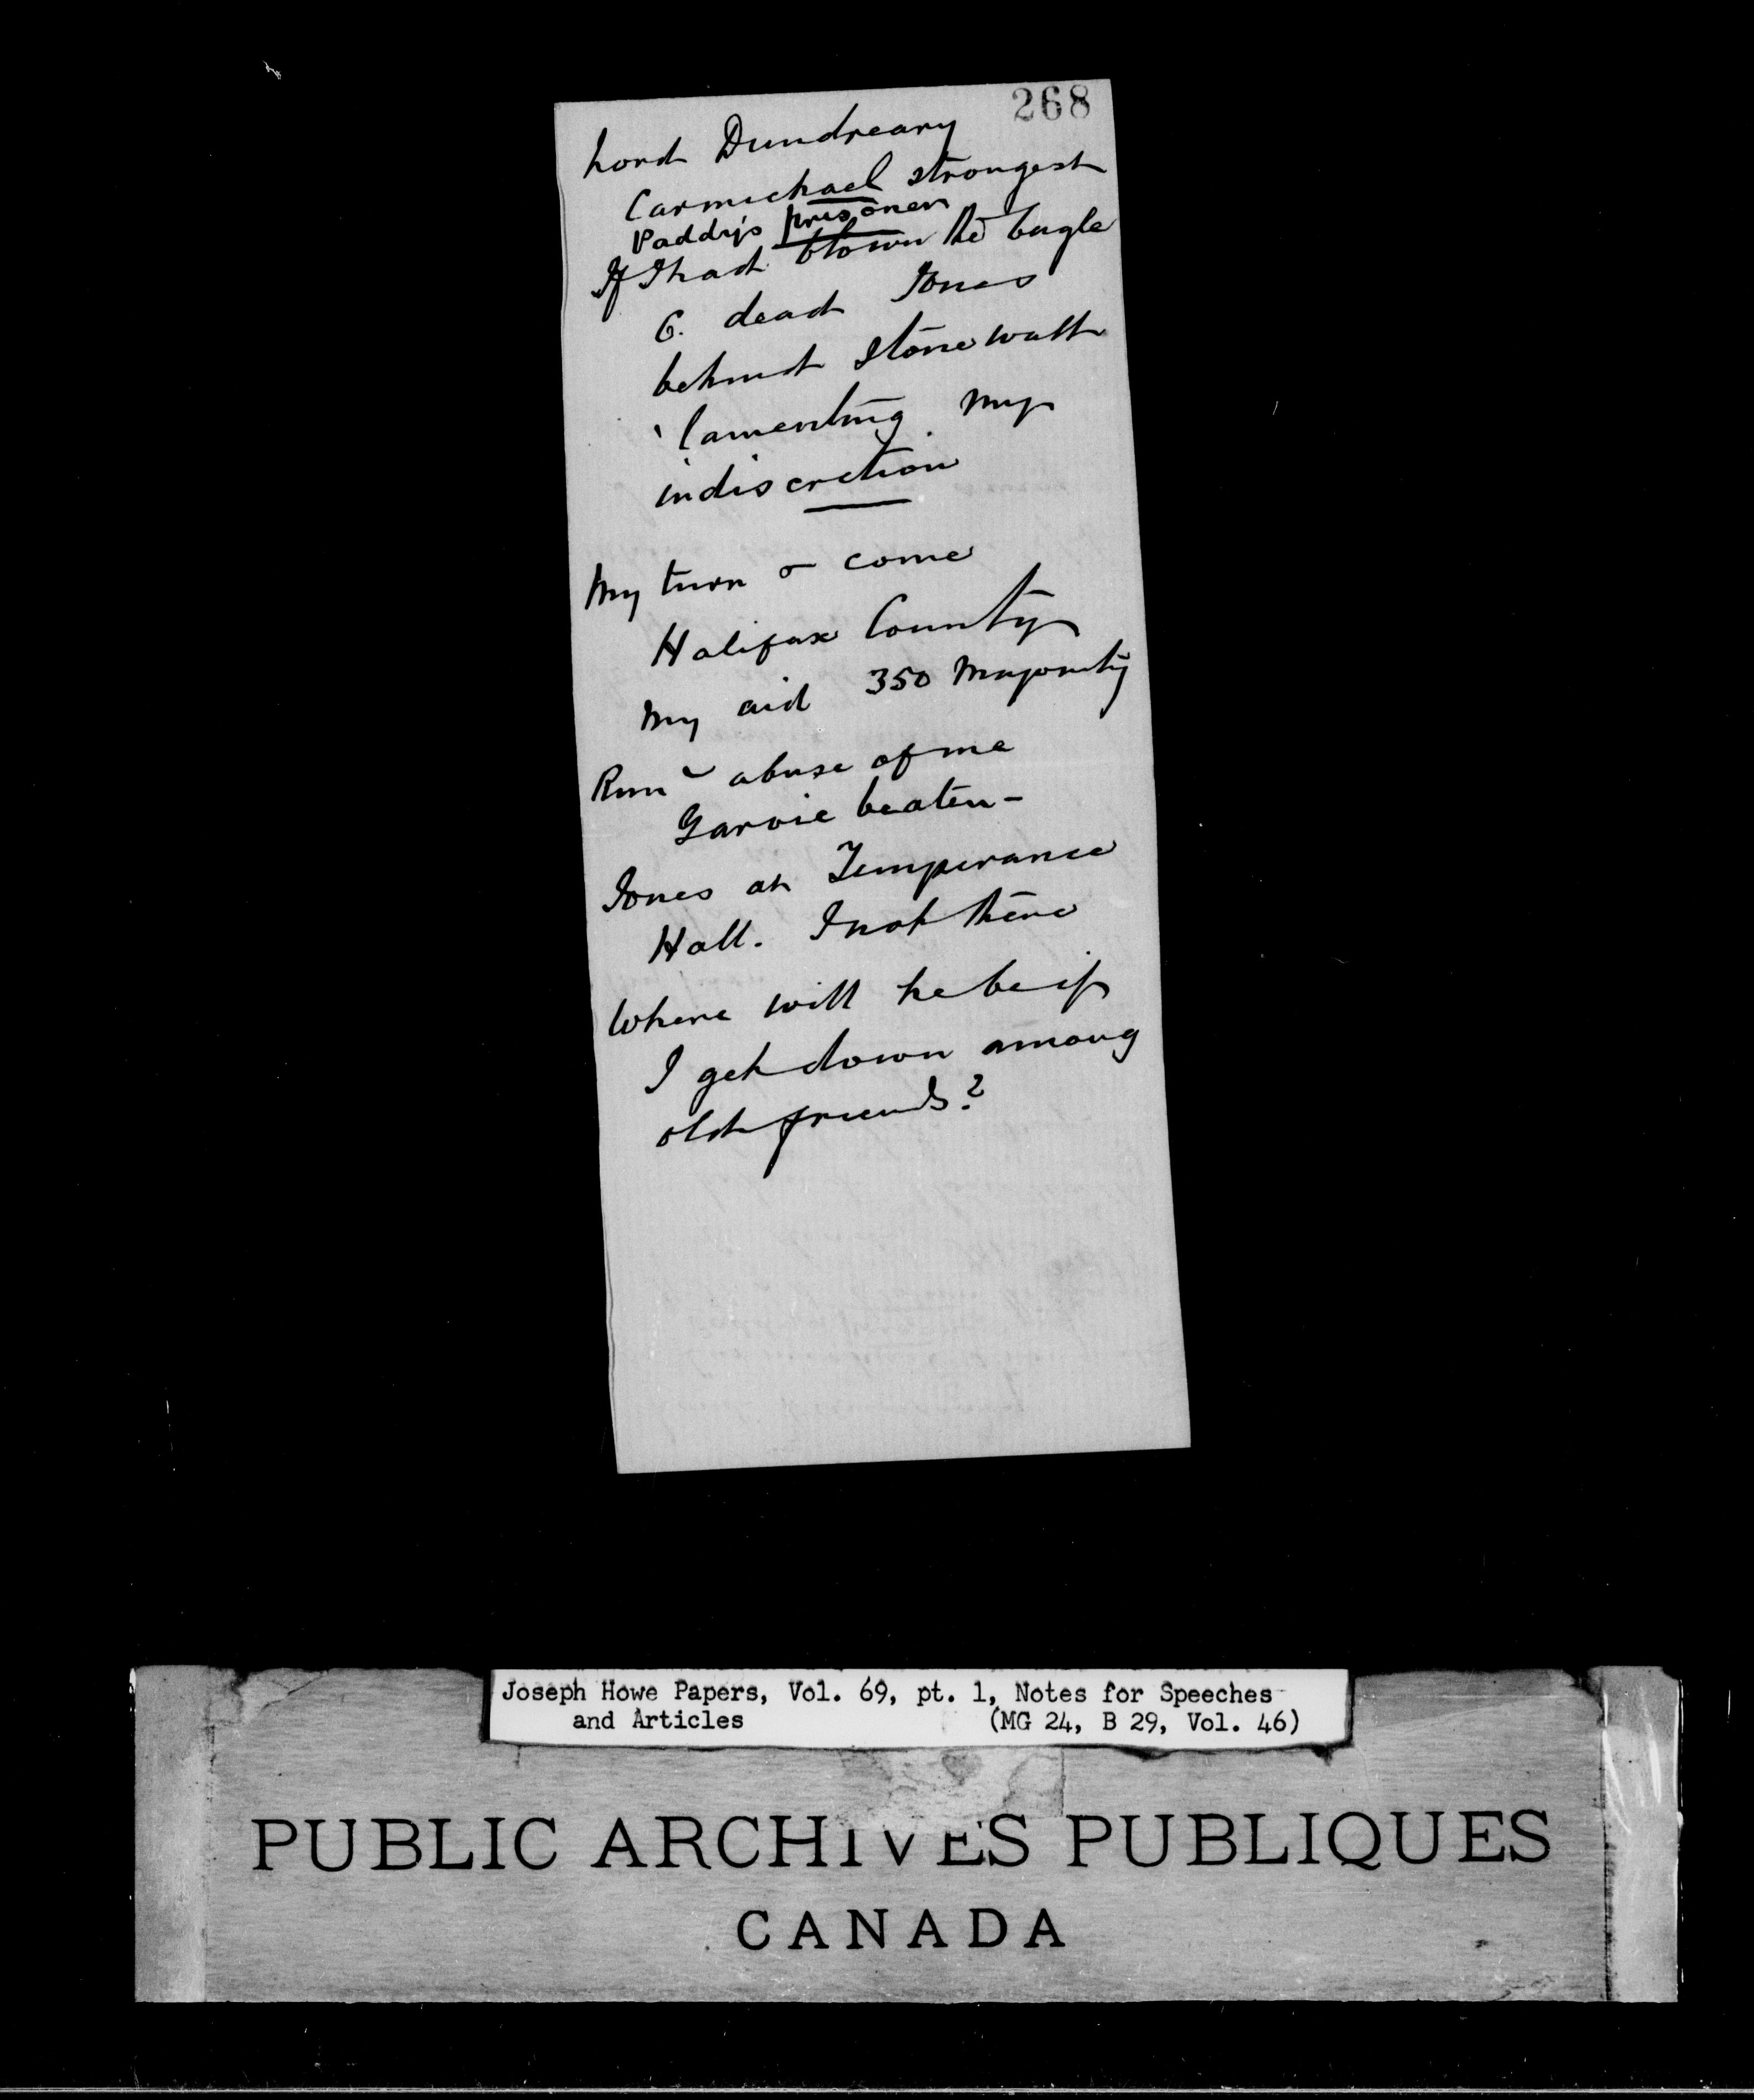 268
Lord Dundreary
Carmichael strongest
Paddy's prisoner
If I had blown the bugle
C. dead Jones
behind stone wall
lamenting my
indiscretion
My turn to come
Halifax County
My aid 350 Majority
Run abuse of me
Garvie beaten -
Jones at Temperance
Hall. I not there
Where will he be if
I get down among
old friends?
Joseph Howe Papers, Vol. 69, pt. 1, Notes for Speeches
and Articles (MG 24, B 29, Vol. 46)
PUBLIC ARCHIVES PUBLIQUES
CANADA